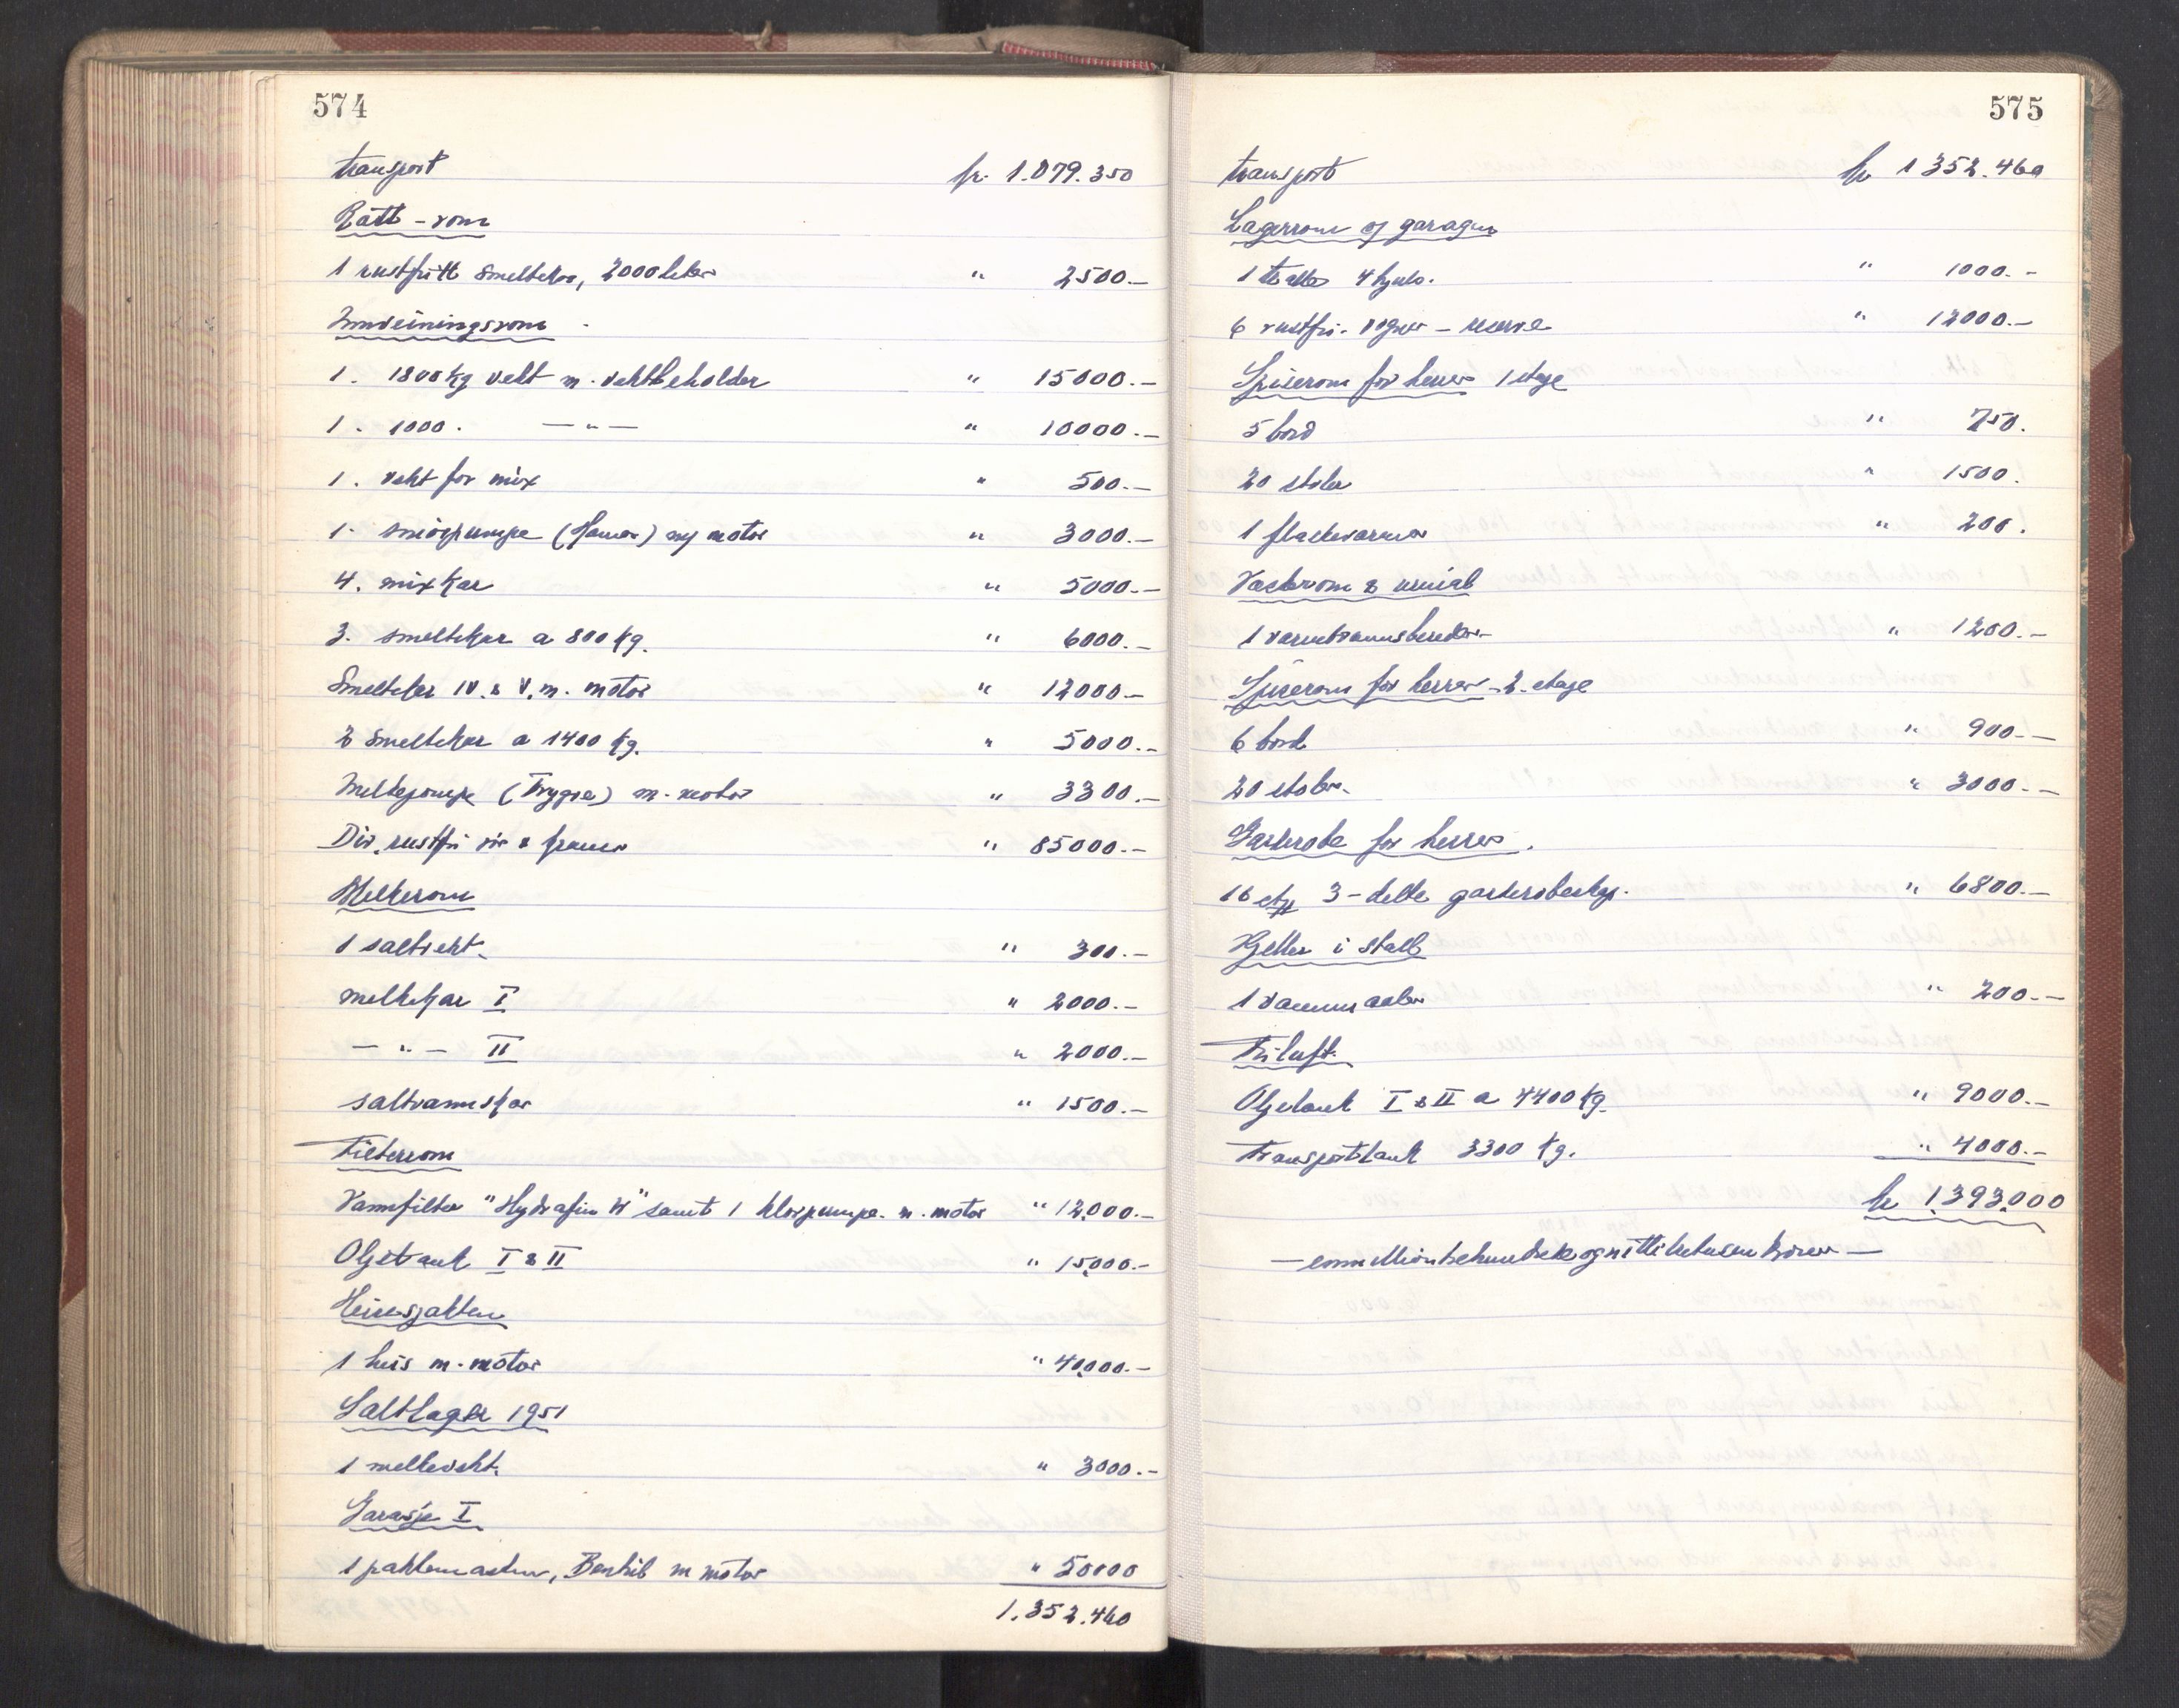 574
transport kr. 1.079.350
Rått-rom
1 rustfritt smeltekar, 2000 liter " 2500.-
Innveiningsrom
1. 1800 kg vekt m. vektbeholder " 15000.-
1. 1000. — " — " 10000.-
1. vekt for mix " 500.-
1. smörpumpe (Hamar) ny motor " 3000.-
4. mixkar " 5000.-
3. smeltekar a 800 kg. " 6000.-
Smeltekar IV. & V. m. motor " 12000.-
2 smeltekar a 1400 kg. " 5000.-
Melkepumpe (Trygve) m. motor " 3300.-
Div. rustfri rör & kraner " 85000.-
Melkerom
1 saltvekt. " 300.-
melkekar I " 2000.-
— " — II " 2000.-
saltvannskar " 1500.-
Filterrom
Vannfilter "Hydrafin W" samt 1 klorpumpe. m. motor " 12,000.-
Oljetank I & II " 15,000.-
Heissjakten
1 heis m. motor " 40,000.-
Saltlager 1951
1 melkevekt. " 3000.-
Garasje I
1 m motor " 50000
1.352.460
575
transport kr 1 352.460
Lagerrom og garager
1 tralle 4 hjuls. " 1000.-
6 rustfri. vogner - reserve " 12000.-
Spiserom for herrer 1 etage
5 bord " 750.
20 stoler " 1500.
1 flaskevarmer " 200.
Vaskerom & urinal
1 varmtvannsbereder- " 1200.-
Spiserom for herrer - 2. etage
6 bord " 900.-
20 stoler. " 3000.-
Garderobe for herrer.
16 stk 3-delte garderobeskap. " 6800.-
Kjeller i stall
1 vannmaaler " 200.-
Friluft.
Oljetank I & II a 4400 kg. " 9000.-
Transporttank 3300 kg. " 4000.-
kr 1,393,000
— enmilliontrehundreognittitretusen kroner —